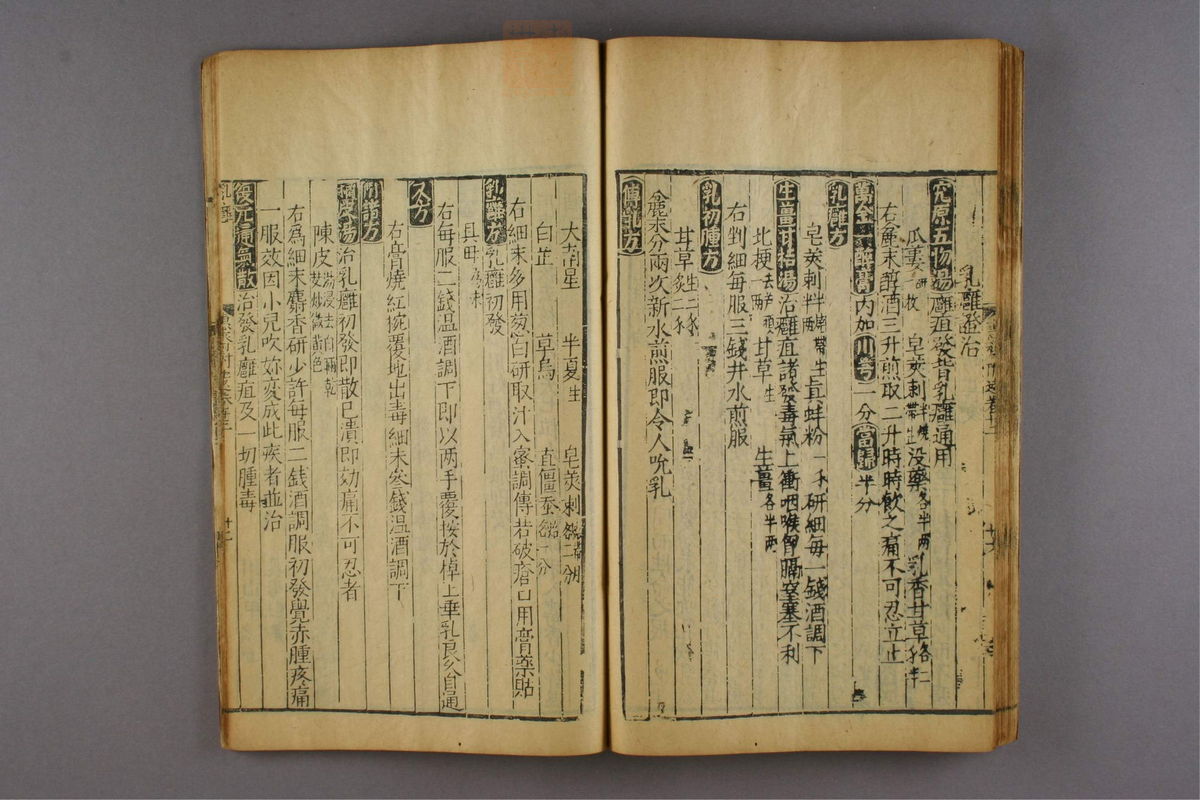 乳癰發治
究原五物湯癰疽發背乳癰通用
瓜蔞研一枚 皂莢刺半燒帶生 沒藥各半兩 乳香甘草各二
右麄末醇酒三升煎取二升時時飲之痛不可忍立止
萬金一醉膏內加川芎一分當歸半分
乳癰方
皂莢刺半燒帶生半兩 真蚌粉 研細每一錢酒調下
生薑甘桔湯治癰疽諸發毒氣上衝咽喉胷膈窒塞不利
北梗一兩去芦頭 甘草生 生薑各半兩
右剉細每服三錢井水煎服
乳初腫方
甘草生二 炙二
麄末分兩次新水煎服即令人吮乳
傅乳方
大南星 半夏生 皂莢刺
白芷 草烏 直僵蚕 一分
右細末多用葱白研取汁入蜜調傅若破瘡口用膏藥貼
乳癰方乳癰初發
貝母為末
右每服二錢温酒調下即以两手覆按於棹上垂乳良久自通
又方
右膏燒紅椀覆地出毒細末叁錢温酒調下
橘皮湯治乳癰初發即散已潰即効痛不可忍者
陳皮湯浸去白晒乾麥炒微黃色
右為細末麝香研少許每服二錢酒調服初發覺赤腫疼痛
一服效因小兒吹妳变成此疾者並治
復元通氣散治發乳癰疽及一切腫毒